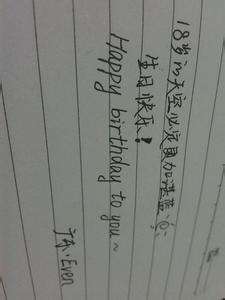 18岁的天空必定更加湛蓝
生日快乐！
Happy birthday to you~
Even